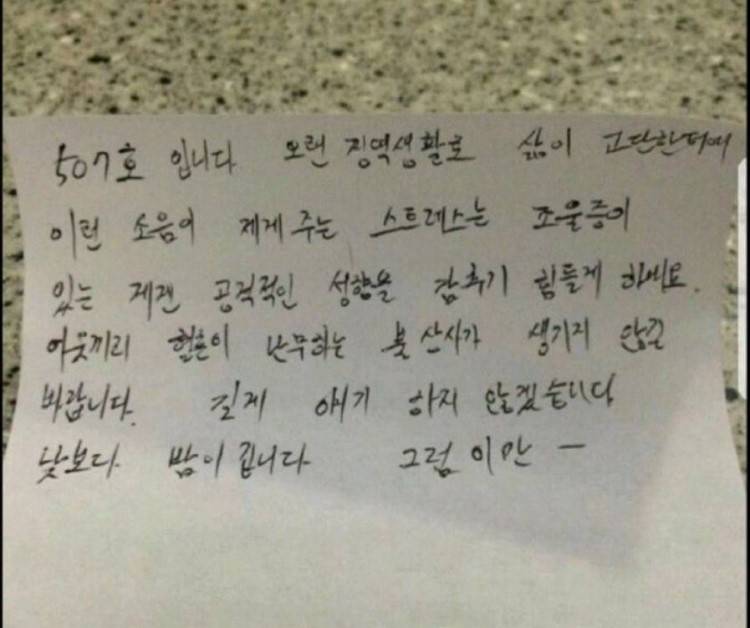 507호 입니다 오랜 징역생활로 삶이 고단한더에
이런 소음이 제게 주는 스트레스는 조울증이
있는 제겐 공격적인 성향을 감추기 힘들게 하네요.
이웃끼리 혈흔이 난무하는 불상사가 생기지 않길
바랍니다. 길게 얘기 하지 않겠습니다
낮보다 밤이 깁니다 그럼 이만 -